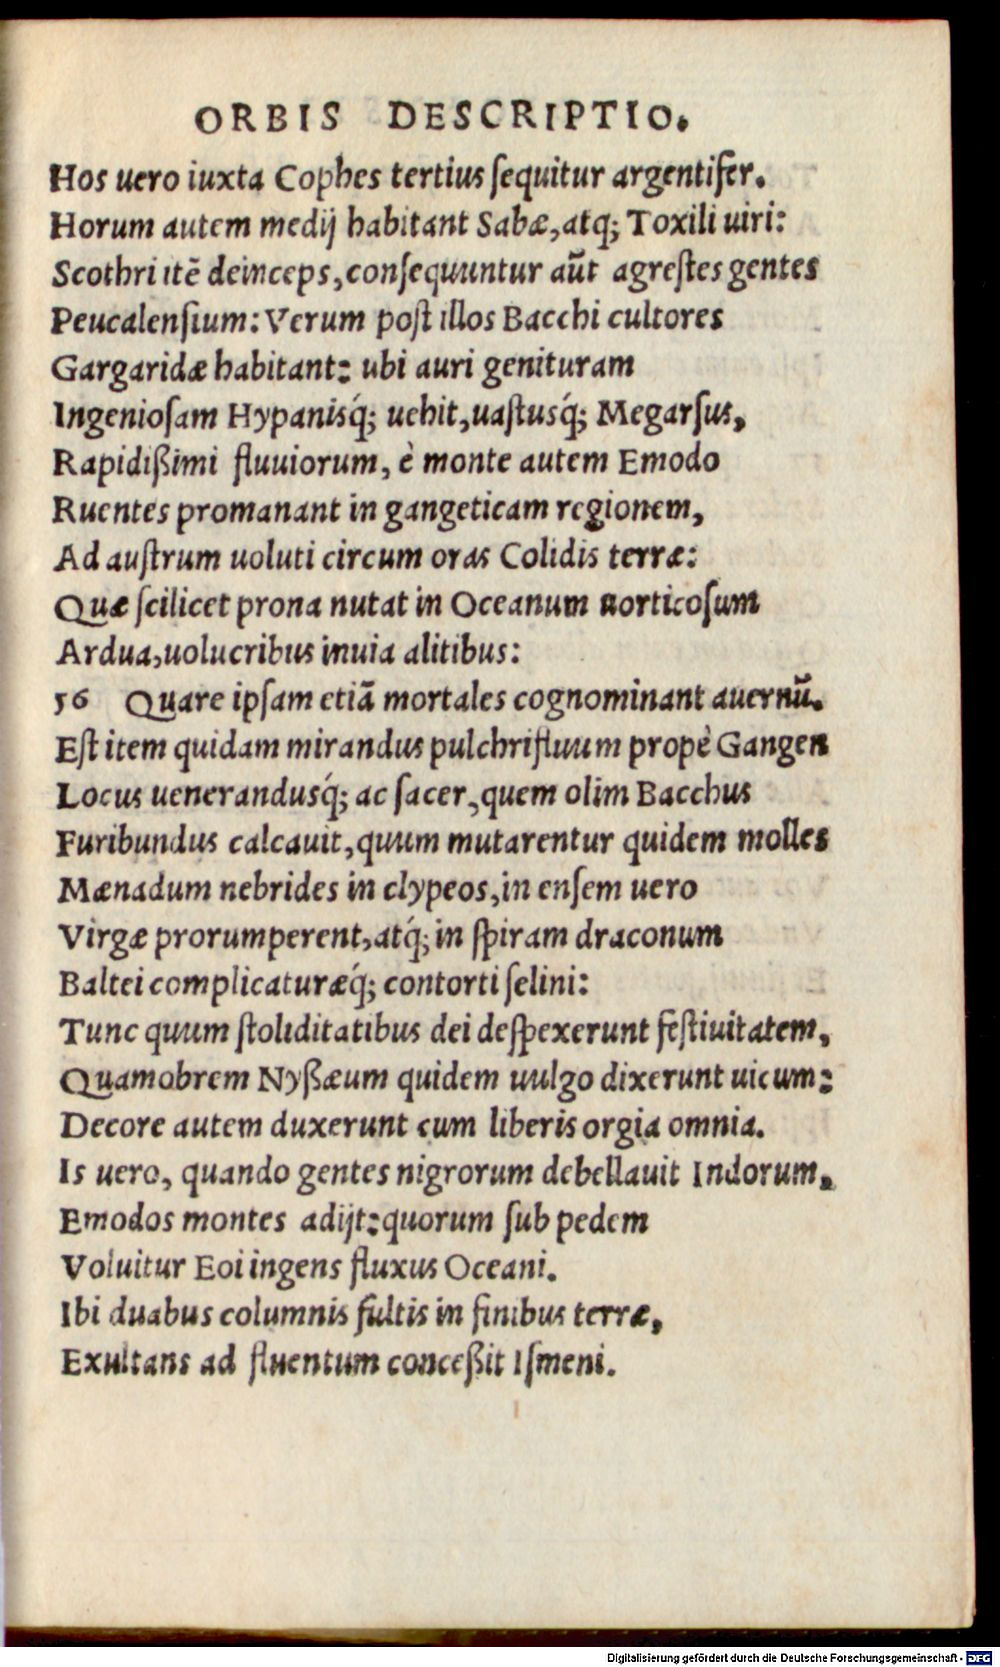 ORBIS DESCRIPTIO.
Hos uero iuxta Cophes tertius sequitur argentifer.
Horum autem medij habitant Sabæ, atq; Toxili uiri:
Scothri itē deinceps, consequuntur aūt agrestes gentes
Peucalensium: Verum post illos Bacchi cultores
Gargaridæ habitant: ubi auri genituram
Ingeniosam Hypanisq́; uehit, uastusq́; Megarsus,
Rapidißimi fluuiorum, è monte autem Emodo
Ruentes promanant in gangeticam regionem,
Ad austrum uoluti circum oras Colidis terræ:
Quæ scilicet prona nutat in Oceanum uorticosum
Ardua, uolucribus inuia alitibus:
56 Quare ipsam etiā mortales cognominant auernū.
Est item quidam mirandus pulchrifluum propè Gangen
Locus uenerandusq́; ac sacer, quem olim Bacchus
Furibundus calcauit, quum mutarentur quidem molles
Mænadum nebrides in clypeos, in ensem uero
Virgæ prorumperent, atq́; in spiram draconum
Baltei complicaturæq́; contorti selini:
Tunc quum stoliditatibus dei despexerunt festiuitatem,
Quamobrem Nyßæum quidem uulgo dixerunt uicum:
Decore autem duxerunt cum liberis orgia omnia.
Is uero, quando gentes nigrorum debellauit Indorum,
Emodos montes adijt: quorum sub pedem
Voluitur Eoi ingens fluxus Oceani.
Ibi duabus columnis fultis in finibus terræ,
Exultans ad fluentum conceßit Ismeni.
Digitalisierung gefördert durch die Deutsche Forschungsgemeinschaft - DFG